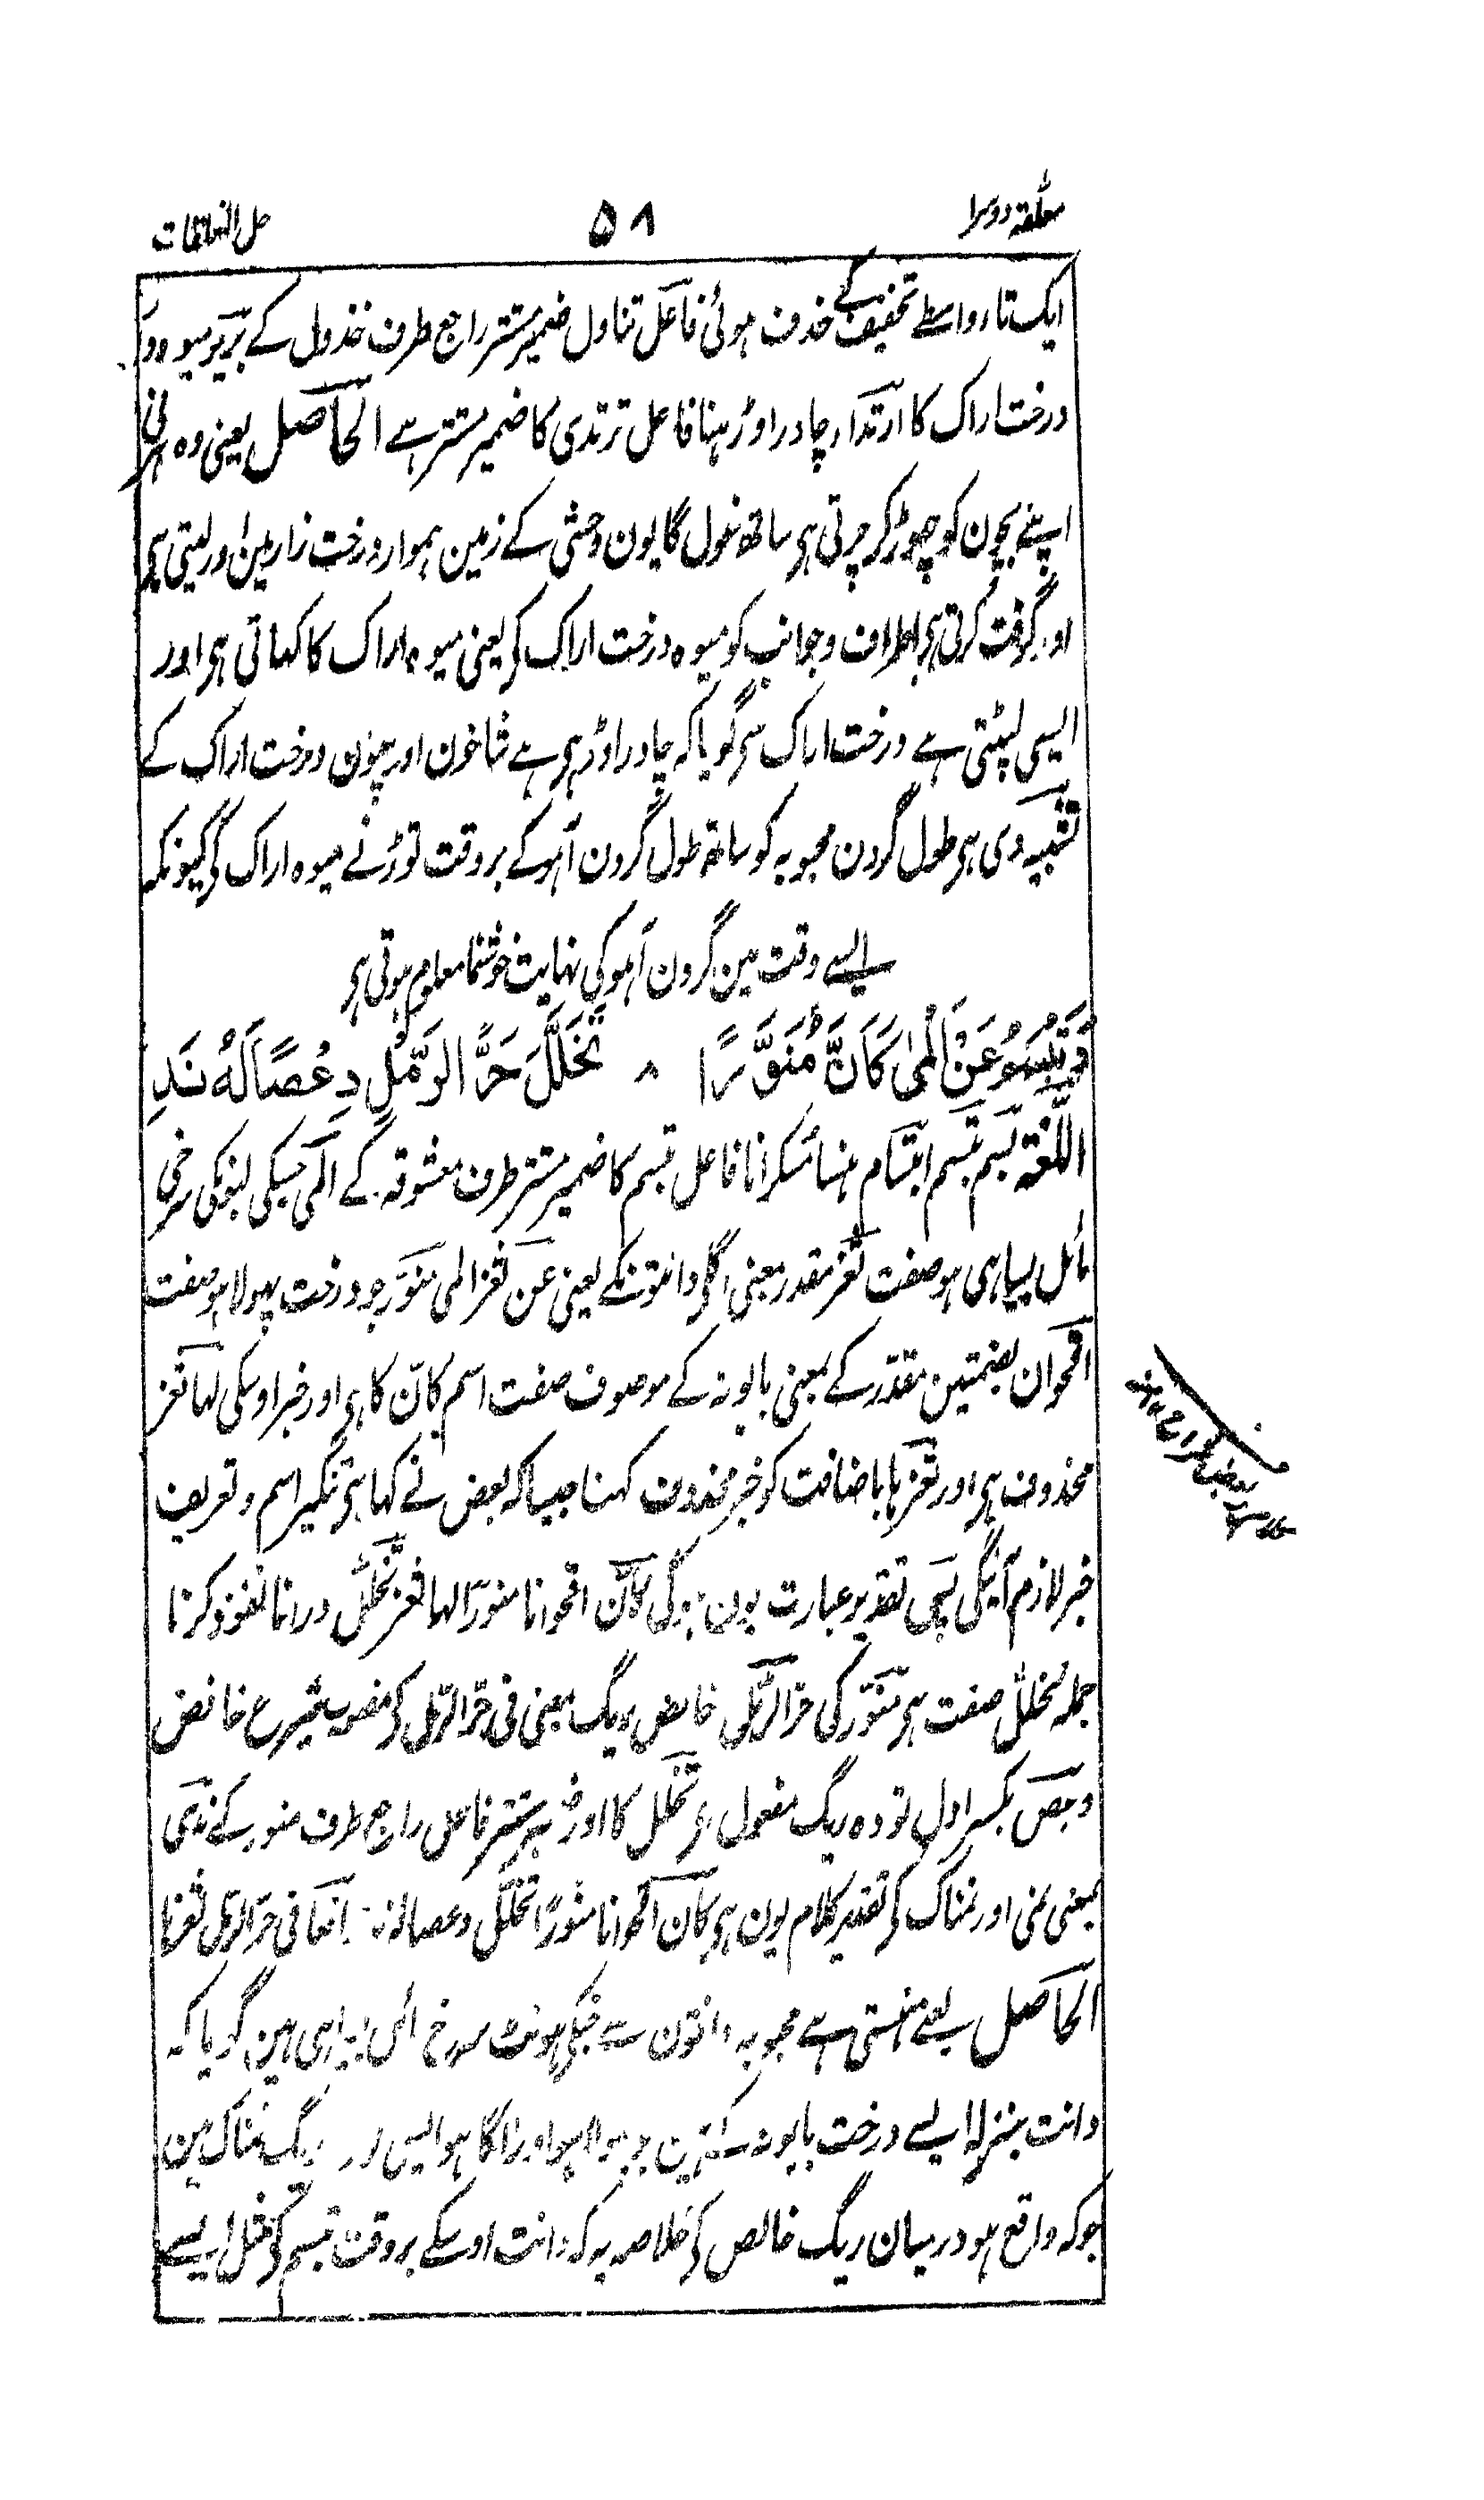 معلقہ دوسرا ۵۸ حل التعلیقات
ایک تاء واسطے تخفیف کے حذف ہوئی فاعل تناول ضمیر مستتر راجع طرف خذول کے بریر میوہ
درخت اراک کا ارتداء چادر اوڑہنا فاعل ترتدی کا ضمیر مستتر ہے الحاصل یعنی وہ ہرنی
اپنے بچون کو چھوڑ کر چرتی ہی ساتھ غول گایون وحشی کے زمین ہموار درخت زار مین اور لیتی ہی
اور گرفت کرتی ہی اطراف و جوانب کو میوہ درخت اراک کی یعنی میوہ اراک کا کہاتی ہی اور
ایسی لپٹتی ہے درخت اراک سی گویا کہ چادر اوڑہی ہے شاخون اور پتون درخت اراک کے
تشبیہ دی ہی طول گردن محبوبہ کو ساتھ طول گردن آہو کے بروقت توڑنے میوہ اراک کی کیونکہ
ایسے وقت مین گردن آہو کی نہایت خوشنما معلوم ہوتی ہی
وَتَبْسِمُ عَنْ أَلْمٰی كَانَّ مُنَوَّرًا ۸ تَخَلَّلَ حَرَّ الرَّمْلِ دِعْصًا لَهُ نَدِ
اللغۃ بسم تبسم ابتسام ہنسا مسکرانا فاعل تبسم کا ضمیر مستتر طرف معشوقہ کے المی جسکی لبونکی سرخی
مائل بسیاہی ہو صفت ثغر مقدر معنی اگلی دانتونکے یعنی عن ثغر المی منور جو درخت پہولا ہو صفت
اقحوان بضمتین مقدر کے بمعنی بابونہ کے موصوف صفت اسم کانّ کا ہی اور خبر اوسکی لہا ثغر
محذوف ہی اور ثغرہا باضافت کو خبر محذوف کہنا جیسا کہ بعض نے کہا ہی تنکیر اسم و تعریف
خبر لازم آئیگی پس تقدیر عبارت یون ہوگی کانّ اقحوانا منورا لہا ثغر تخلل درانا نفوذ کرنا
جملہ تخلل صفت ہی منور کی حر الرمل خالص ریگ بمعنی فی حر الرمل کی خالص
دعص بکسر اول تودہ ریگ مفعول ہی تخلل کا اور ضمیر مستتر فاعل راجع طرف منور کے ندی
بمعنی نمی اور نمناک کی تقدیر کلام یون ہی کان اقحوانا منورًا تخلل دعصا لہ فی حر الرمل ثغرہا
الحاصل یعنے ہنستی ہے محبوبہ دانتون سے جنکی ہونٹ سرخ مائل بسیاہی ہین گویا کہ
دانت بمنزلہ ایسے درخت بابونہ کے ہین جو پہولا ہوا اور لگا ہو ایسی ریگ نمناک مین
جو کہ واقع ہو درمیان ریگ خالص کی خلاصہ یہ کہ دانت اوسکے بروقت تبسم کی مثل ایسے